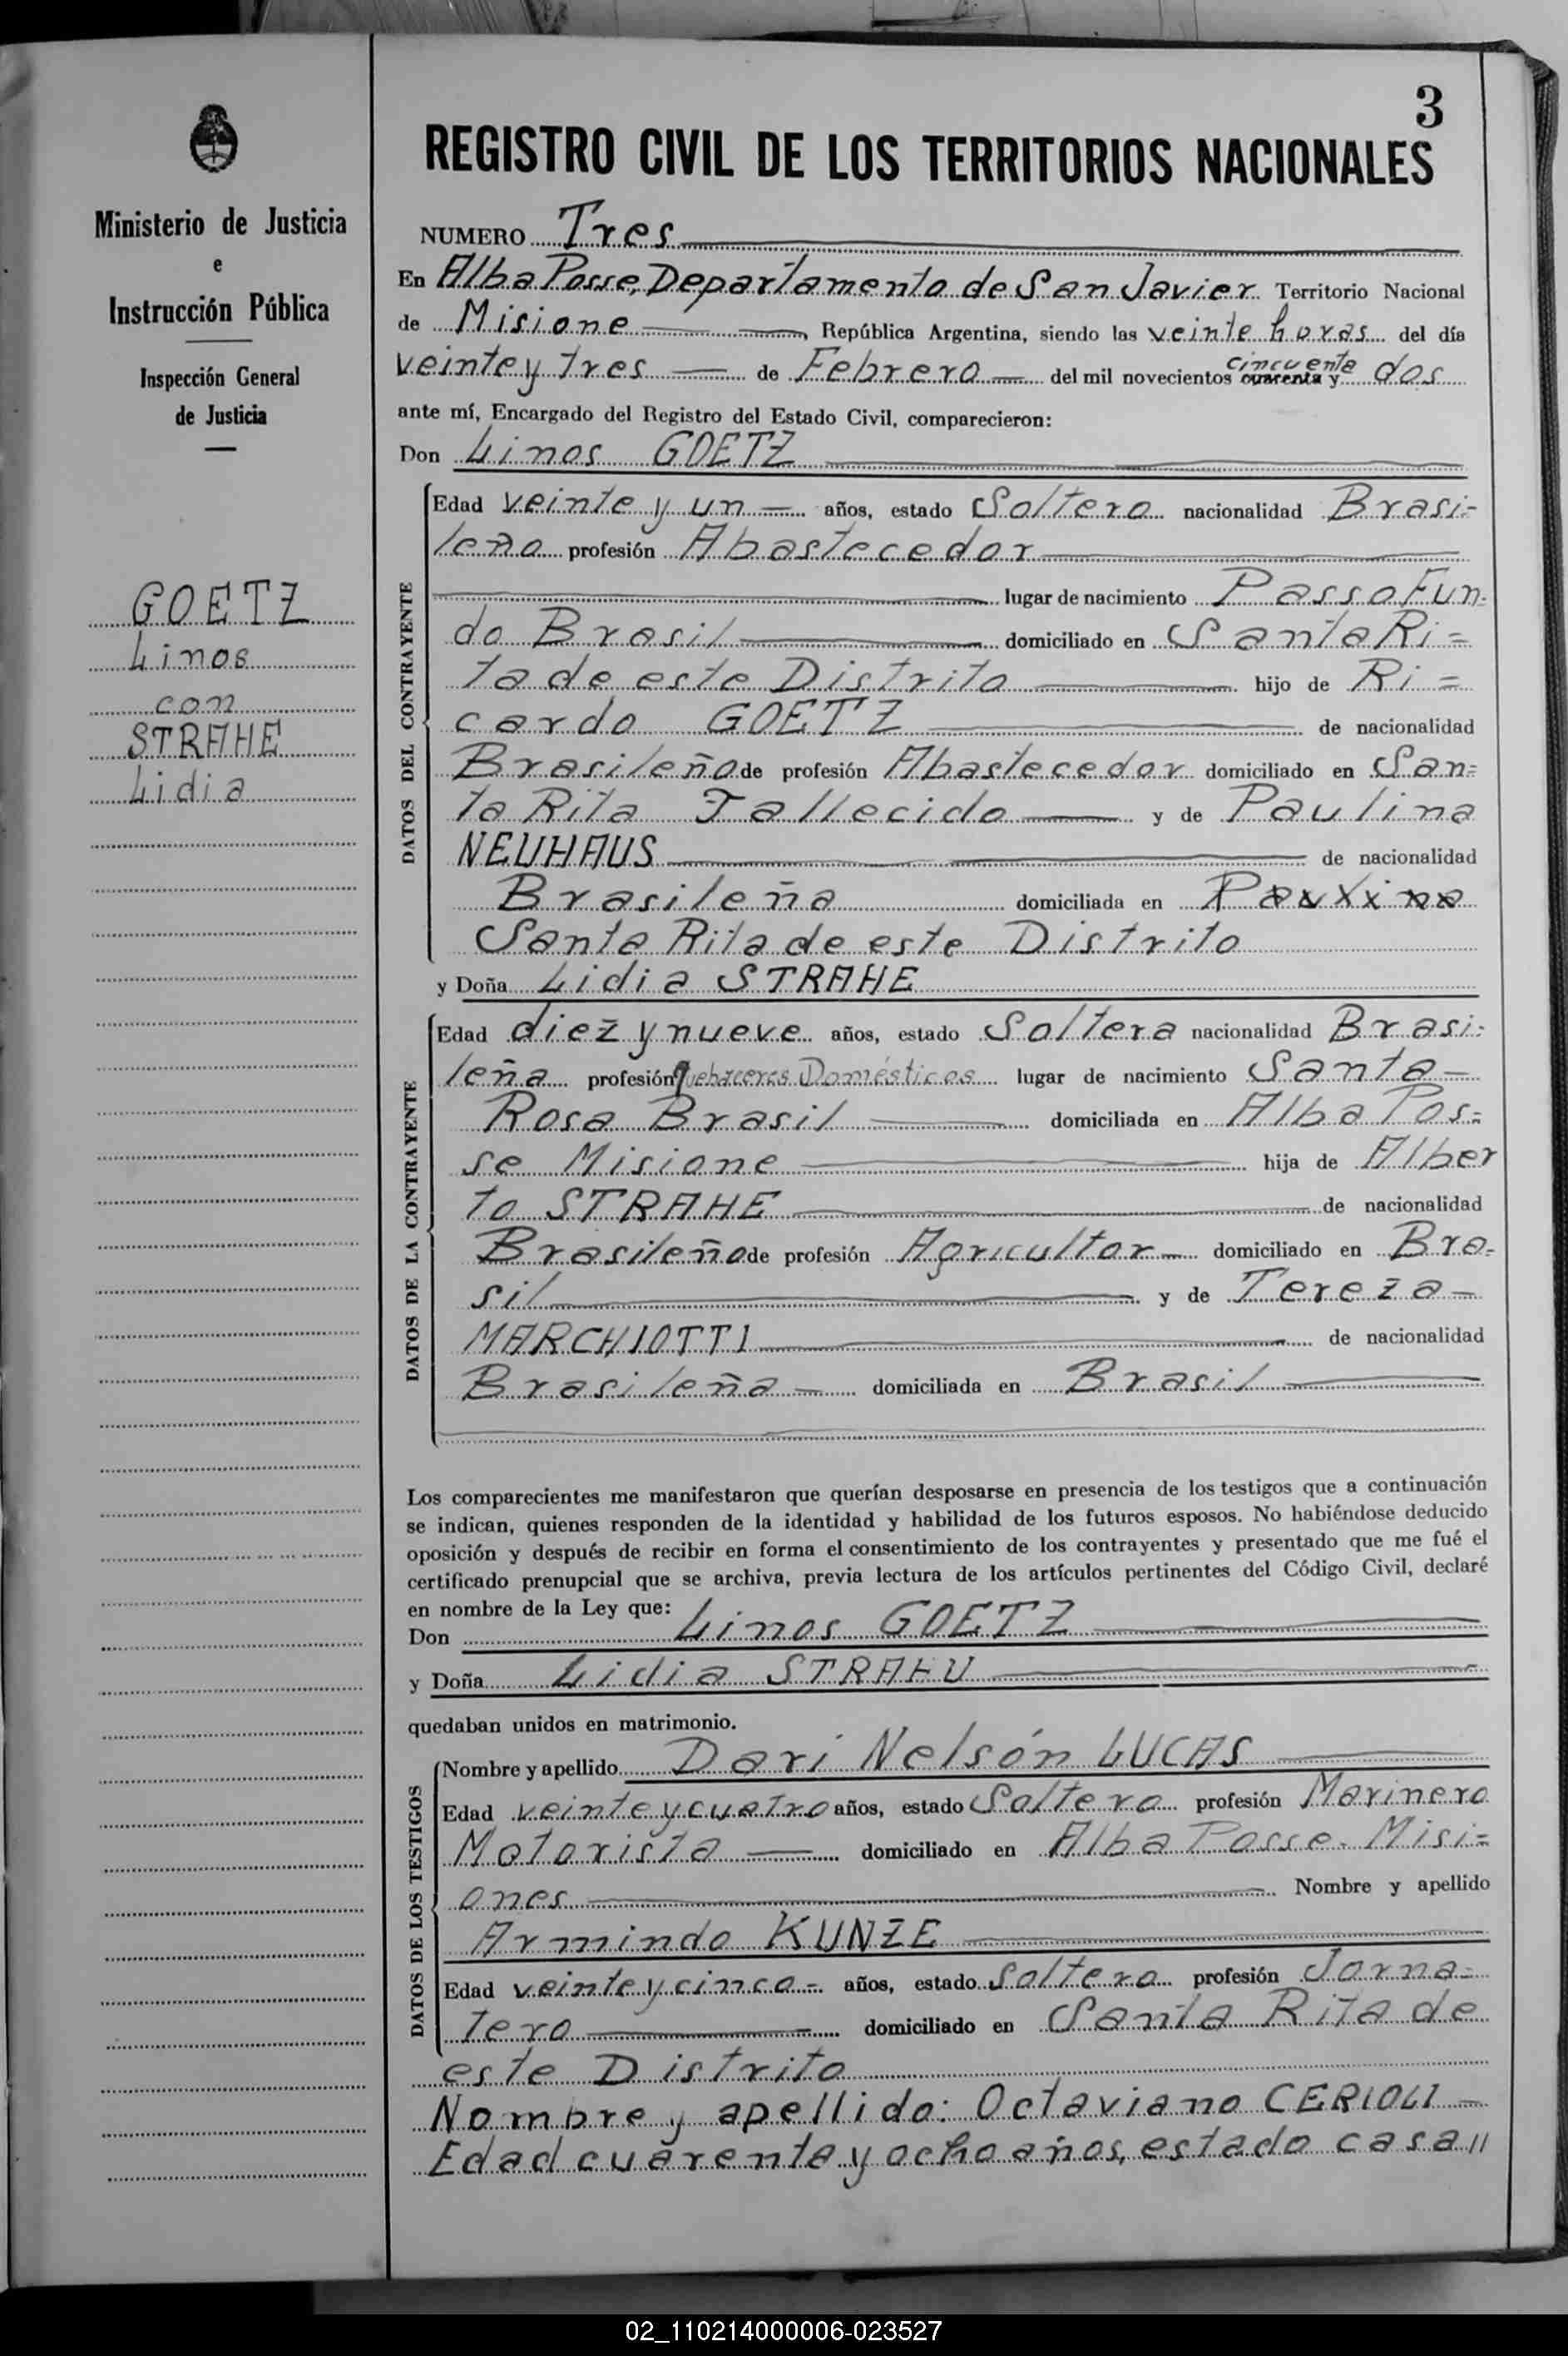 3
REGISTRO CIVIL DE LOS TERRITORIOS NACIONALES
Ministerio de Justicia
e
Instrucción Pública
Inspección General
de Justicia
GOETZ
Linos
con
STRAHE
Lidia
NUMERO Tres
En Alba Posse, Departamento de San Javier Territorio Nacional
de Misione, República Argentina, siendo las veinte horas del día
veinte y tres de Febrero del mil novecientos cuarenta y cincuenta dos
ante mí, Encargado del Registro del Estado Civil, comparecieron:
Don Linos GOETZ
DATOS DEL CONTRAYENTE
Edad veinte y un años, estado Soltero nacionalidad Brasi-
leño profesión Abastecedor
lugar de nacimiento Passo Fun-
do Brasil domiciliado en Santa Ri=
ta de este Distrito hijo de Ri=
cardo GOETZ de nacionalidad
Brasileño de profesión Abastecedor domiciliado en San=
ta Rita Fallecido y de Paulina
NEUHAUS de nacionalidad
Brasileña domiciliada en Paulina
Santa Rita de este Distrito
y Doña Lidia STRAHE
DATOS DE LA CONTRAYENTE
Edad diez y nueve años, estado Soltera nacionalidad Brasi-
leña profesión Quehaceres Domésticos lugar de nacimiento Santa
Rosa Brasil domiciliada en Alba Pos=
se Misione hija de Alber
to STRAHE de nacionalidad
Brasileño de profesión Agricultor domiciliado en Bra=
sil y de Tereza
MARCHIOTTI de nacionalidad
Brasileña domiciliada en Brasil
Los comparecientes me manifestaron que querían desposarse en presencia de los testigos que a continuación
se indican, quienes responden de la identidad y habilidad de los futuros esposos. No habiéndose deducido
oposición y después de recibir en forma el consentimiento de los contrayentes y presentado que me fué el
certificado prenupcial que se archiva, previa lectura de los artículos pertinentes del Código Civil, declaré
en nombre de la Ley que:
Don Linos GOETZ
y Doña Lidia STRAHU
quedaban unidos en matrimonio.
DATOS DE LOS TESTIGOS
Nombre y apellido Dari Nelsón LUCAS
Edad veinte y cuatro años, estado Soltero profesión Marinero
Motorista domiciliado en Alba Posse- Misi=
ones Nombre y apellido
Armindo KUNZE
Edad veinte y cinco años, estado Soltero profesión Jorna=
lero domiciliado en Santa Rita de
este Distrito
Nombre y apellido: Octaviano CERIOLI
Edad cuarenta y ocho años, estado casa"
02_110214000006-023527